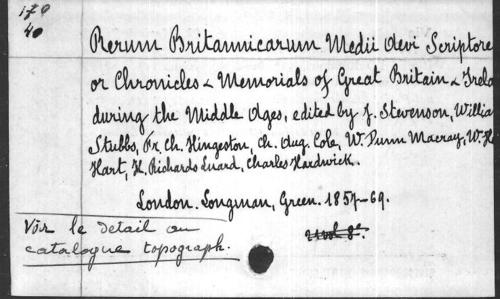 40
Rerum Britannicarum Medii Aevi Scriptore
or Chronicles & Memorials of Great Britain & Irela
during the Middle Ages, edited by J. Stevenson, Willia
Stubbs, Fr. Ch. Hingeston, Ch. Aug. Cole, W. Dunn Macray, W. H
Hart, H. Richards Luard, Charles Hardwick.
London. Longman, Green. 1857-69.
Voir le détail au
catalogue topograph.